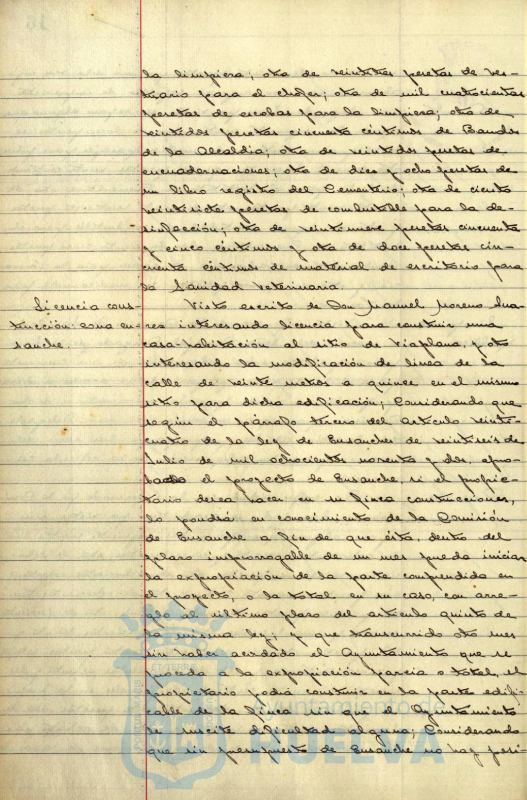 la limpieza; otra de veintitres pesetas de ves-
tuario para el chofer; otra de mil cuatrocientas
pesetas de escobas para la limpieza; otra de
veintidos pesetas cincuenta céntimos de Bandos
de la Alcaldia; otra de veintidos pesetas de
encuadernaciones; otra de dies y ocho pesetas de
un libro registro del Cementerio; otra de ciento
veintisiete pesetas de combustible para la de-
sinfección; otra de veintinueve pesetas cincuenta
y cinco céntimos y otra de doce pesetas cin-
cuenta céntimos de material de escritorio para
la Sanidad Veterinaria.
Licencia cons-
trucción zona en-
sanche.
Visto escrito de Don Manuel Moreno Sua-
res interesando licencia para construir una
casa-habitación al sitio de Viaplana, y otro
interesando la modificación de linea de la
calle de veinte metros a quince en el mismo
sitio para dicha edificación; Considerando que
según el párrafo tercero del artículo veinti-
cuatro de la ley de Ensanches de veintiseis de
Julio de mil ochocientos noventa y dos, apro-
bado el proyecto de Ensanche, si el propie-
tario desea hacer en su finca construcciones,
lo pondrá en conocimiento de la Comisión
de Ensanche a fin de que ésta, dentro del
plazo improrrogable de un mes pueda iniciar
la expropiación de la parte comprendida en
el proyecto, o la total en su caso, con arre-
glo al último plazo del artículo quinto de
la misma ley; y que transcurrido otro mes
sin haber acordado el Ayuntamiento que se
proceda a la expropiación parcia o total, el
propietario podrá construir en la parte edifi-
cable de la finca sin que el Ayuntamiento
le suscite dificultad alguna; Considerando
que sin presupuesto de Ensanche no hay posi-
Ayuntamiento de
HUELVA